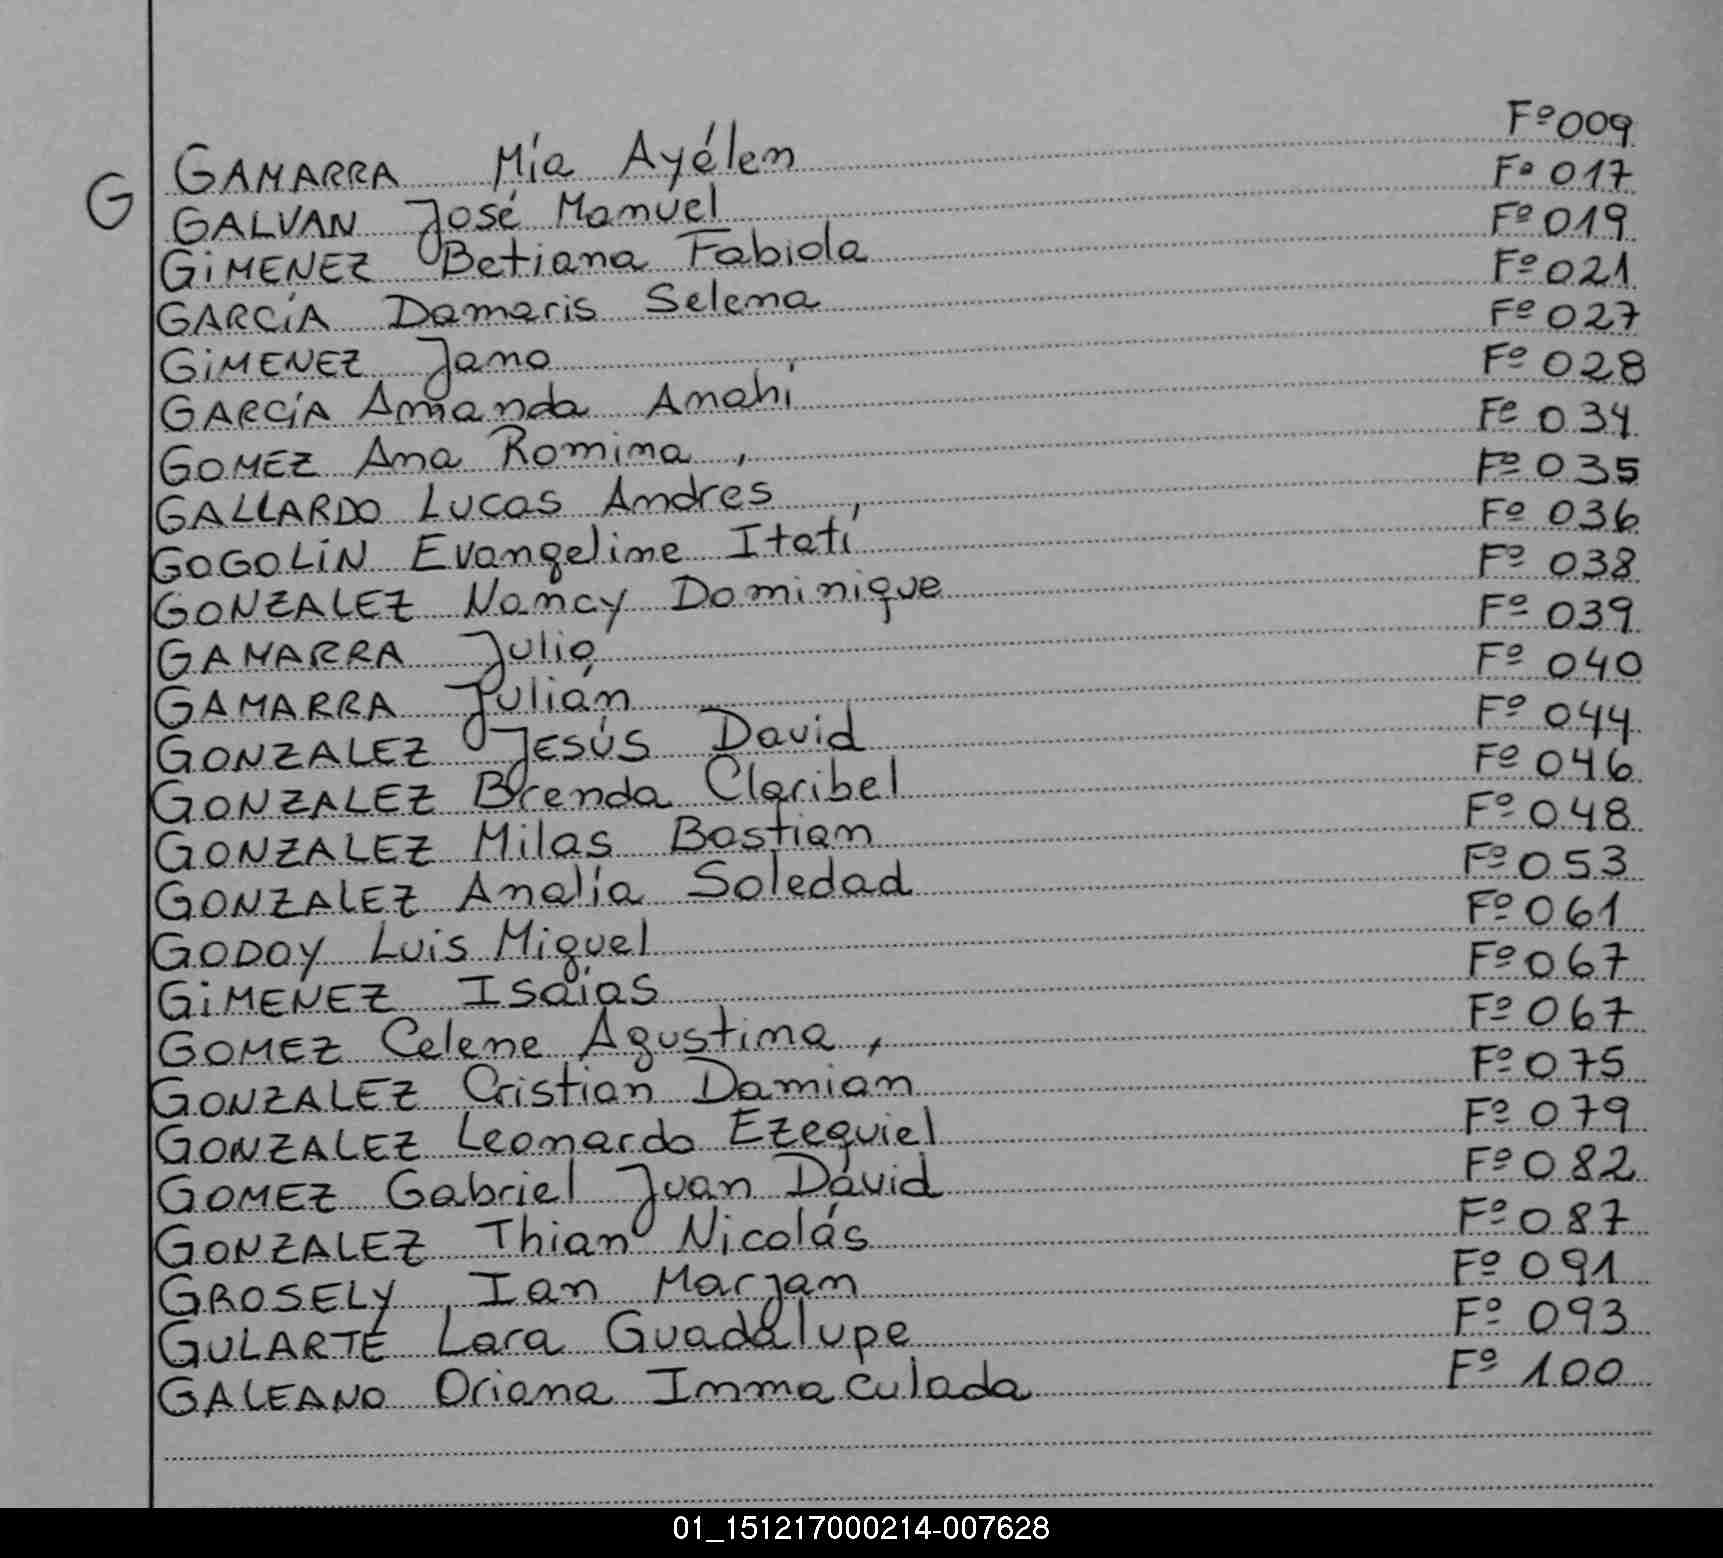 G
GAMARRA Mía Ayélen Fº009
GALVAN José Manuel Fº017
GiMENEZ Betiana Fabiola Fº019
GARCÍA Damaris Selena Fº021
GiMENEZ Jano Fº027
GARCÍA Amanda Anahí Fº028
GOMEZ Ana Romina, Fº034
GALLARDO Lucas Andres Fº035
GOGOLiN Evangeline Itatí Fº036
GONZALEZ Nancy Dominique Fº038
GAMARRA Julio Fº039
GAMARRA Julián Fº040
GONZALEZ JESÚS David Fº044
GONZALEZ Brenda Claribel Fº046
GONZALEZ Milas Bastian Fº048
GONZALEZ Analía Soledad Fº053
GODOY Luis Miguel Fº061
GiMENEZ Isaías Fº067
GOMEZ Celene Agustina, Fº067
GONZALEZ Cristian Damian Fº075
GONZALEZ Leonardo Ezequiel Fº079
GOMEZ Gabriel Juan David Fº082
GONZALEZ Thian Nicolás Fº087
GROSELY Ian Marjan Fº091
GULARTE Lara Guadalupe Fº093
GALEANO Oriana Inmaculada Fº100
01_151217000214-007628